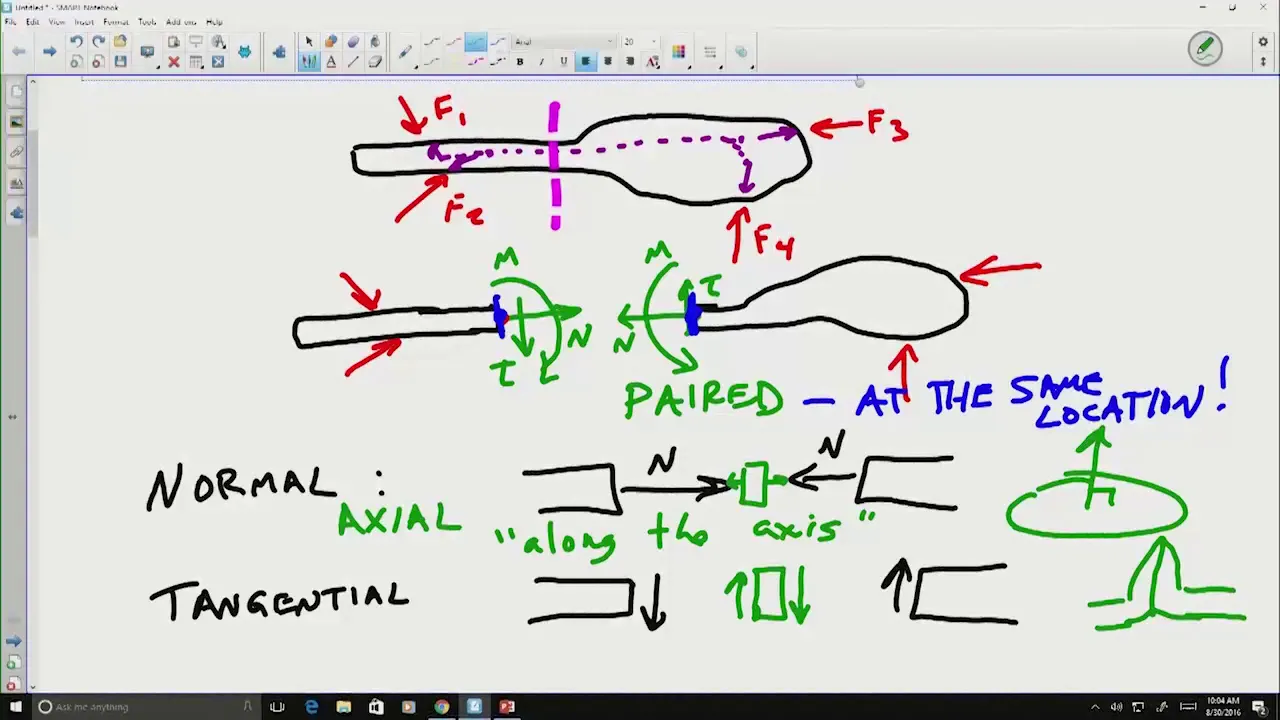 Untitled * - SMART Notebook
File Edit View Insert Format Tools Add-ons Help
Arial 20
B I U
F1
F3
F2
F4
M M
τ
N N
τ
PAIRED - AT THE SAME
LOCATION!
NORMAL : N N
AXIAL "along the axis"
TANGENTIAL
Ask me anything
10:04 AM
8/30/2016